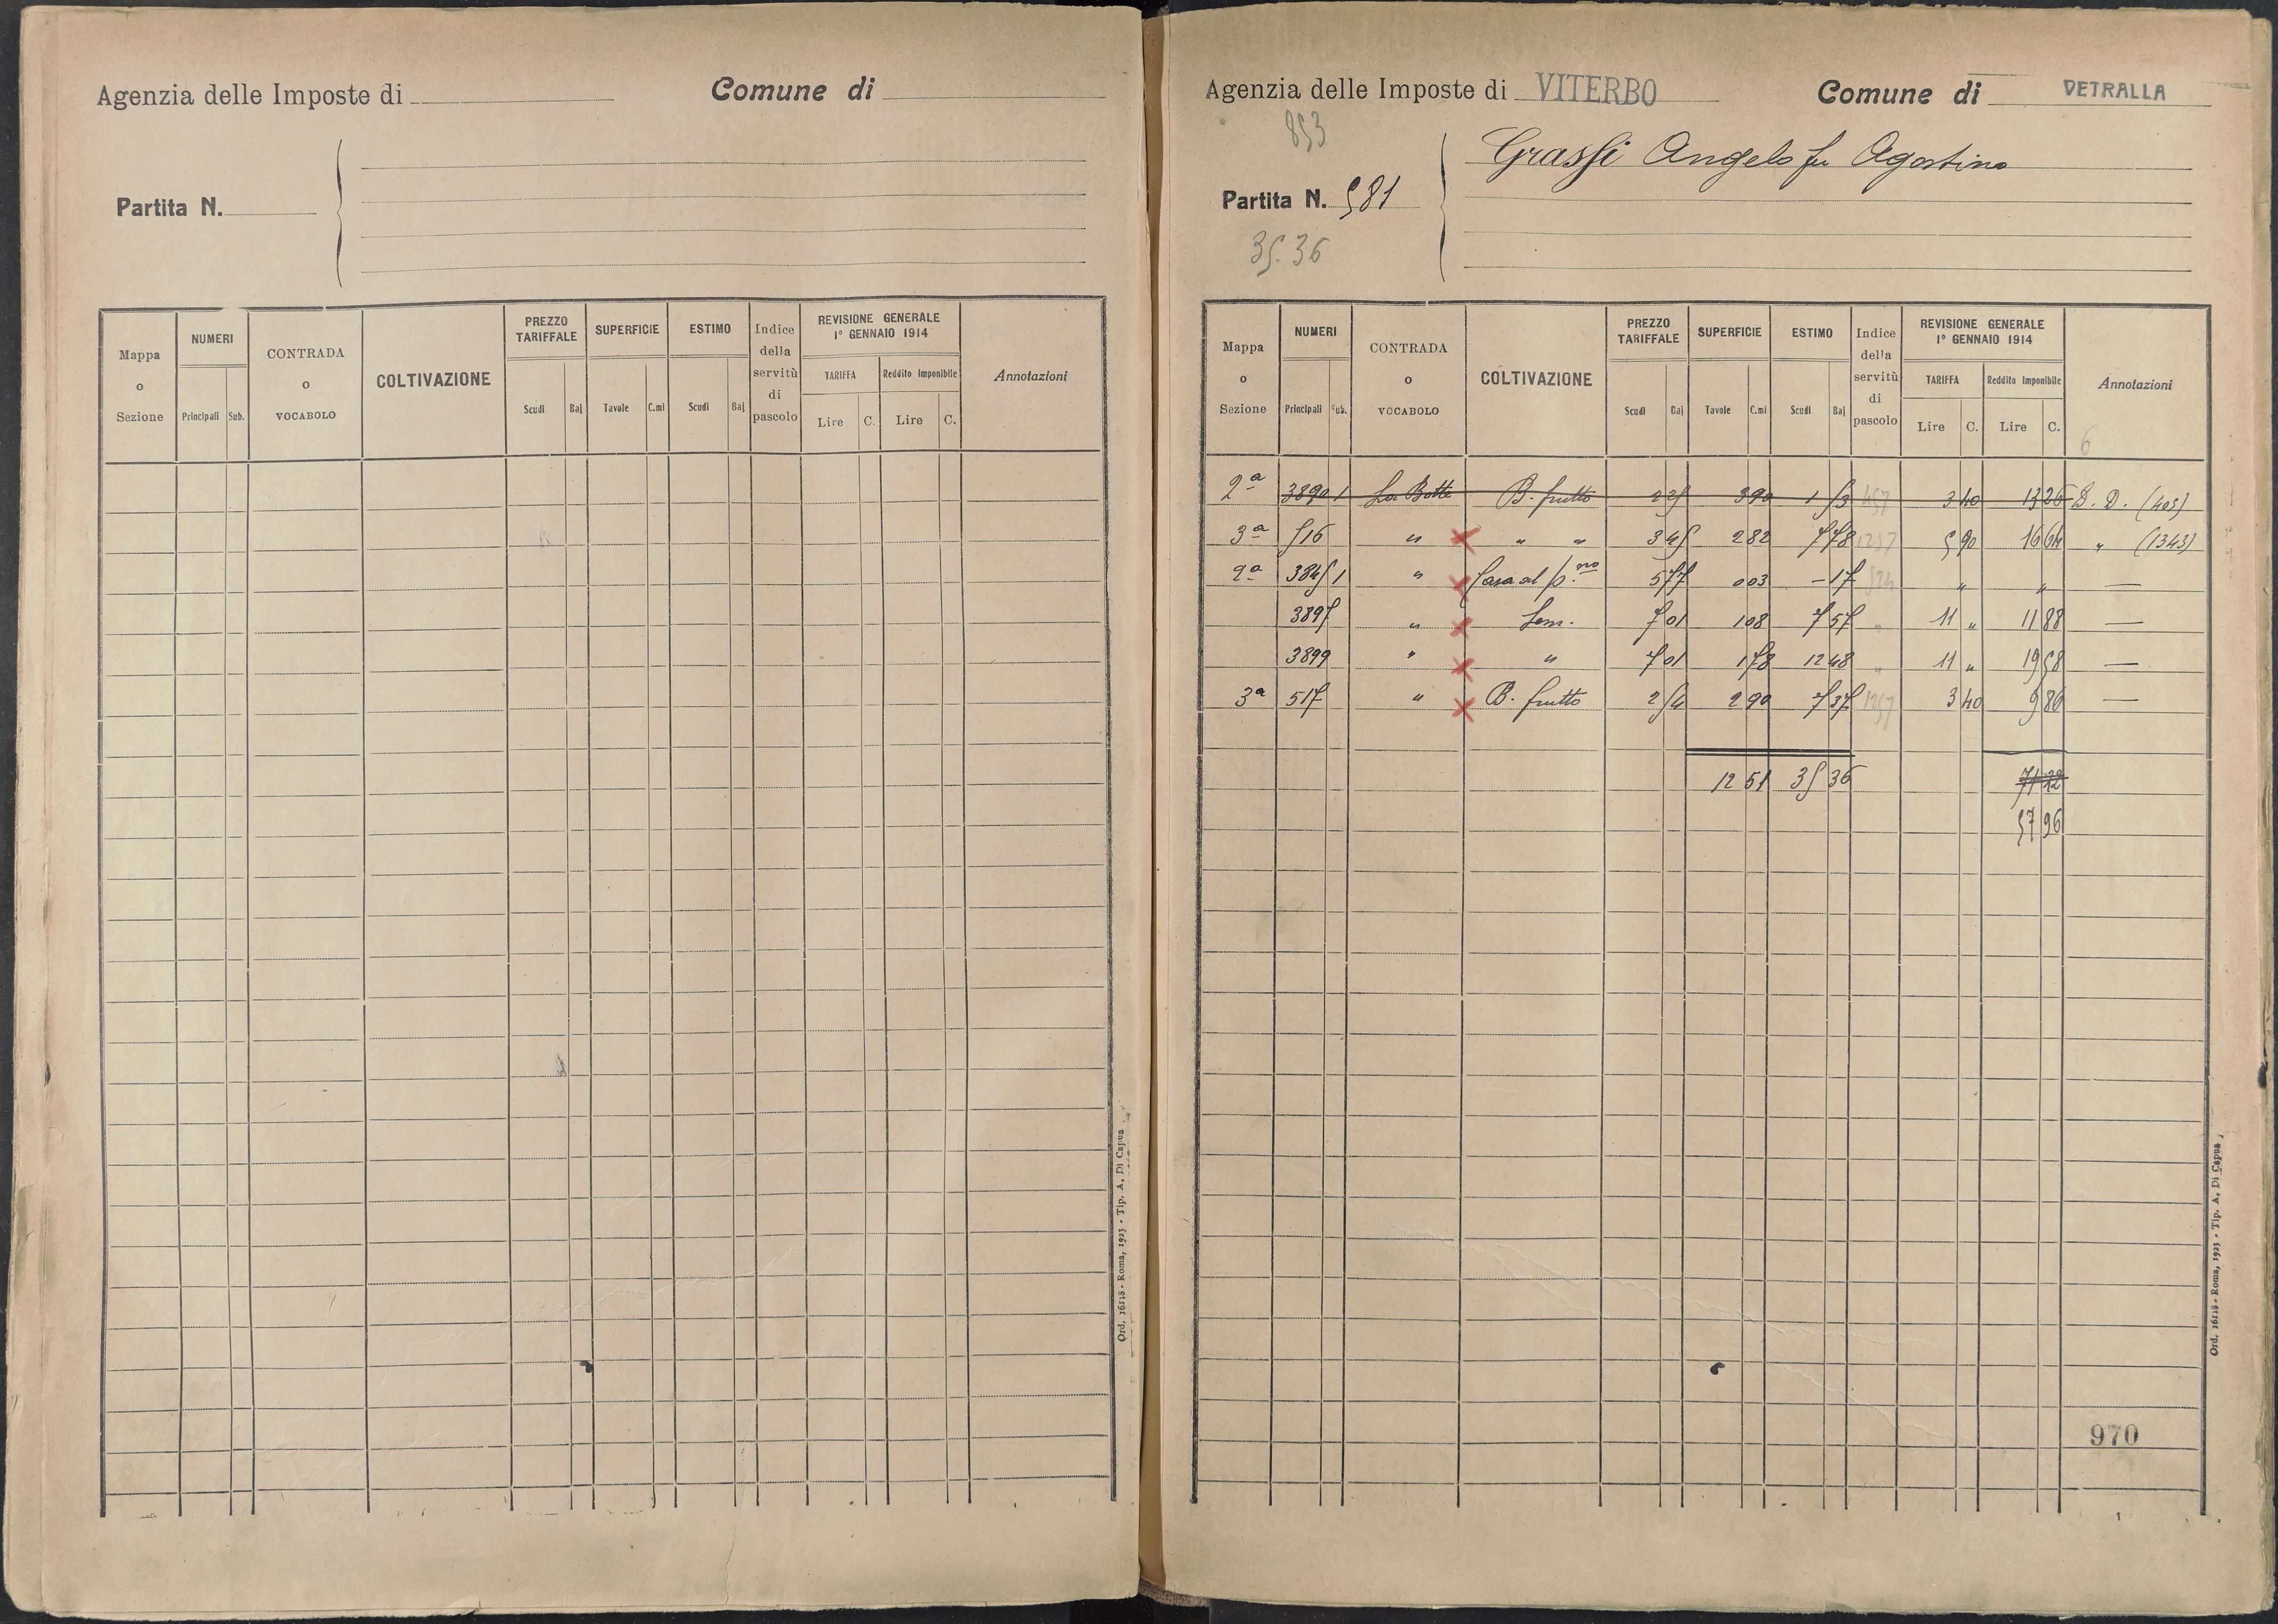 Agenzia delle Imposte di
Comune di
Partita N.
Mappa o Sezione
NUMERI
Principali Sub.
CONTRADA o VOCABOLO
COLTIVAZIONE
PREZZO TARIFFALE
Scudi Baj
SUPERFICIE
Tavole C.mi
ESTIMO
Scudi Baj
Indice della servitù di pascolo
REVISIONE GENERALE 1° GENNAIO 1914
TARIFFA
Lire C.
Reddito Imponibile
Lire C.
Annotazioni
Ord. 16118 - Roma, 1923 - Tip. A. Di Capua
Agenzia delle Imposte di VITERBO
Comune di VETRALLA
853
Partita N. 581
Grassi Angelo fu Agostino
35.36
Mappa o Sezione
NUMERI
Principali Sub.
CONTRADA o VOCABOLO
COLTIVAZIONE
PREZZO TARIFFALE
Scudi Baj
SUPERFICIE
Tavole C.mi
ESTIMO
Scudi Baj
Indice della servitù di pascolo
REVISIONE GENERALE 1° GENNAIO 1914
TARIFFA
Lire C.
Reddito Imponibile
Lire C.
Annotazioni
6
2a 3890 1 La Botte B. frutto 390 3 40 13 26 D. D. (405)
3a 516 " " " 2 82 7 78 1257 5 90 16 64 " (1343)
2a 3845 1 " Casa al p.no 5 77 0 03 - 17 " " —
3897 " Sem. 7 01 1 08 7 57 " 11 " 11 88 —
3899 " " 7 01 1 78 12 48 " 11 " 19 58 —
3a 517 " B. frutto 2 54 2 90 7 37 1257 3 40 9 86 —
12 51 35 36 71 22
57 96
970
Ord. 16118 - Roma, 1923 - Tip. A. Di Capua